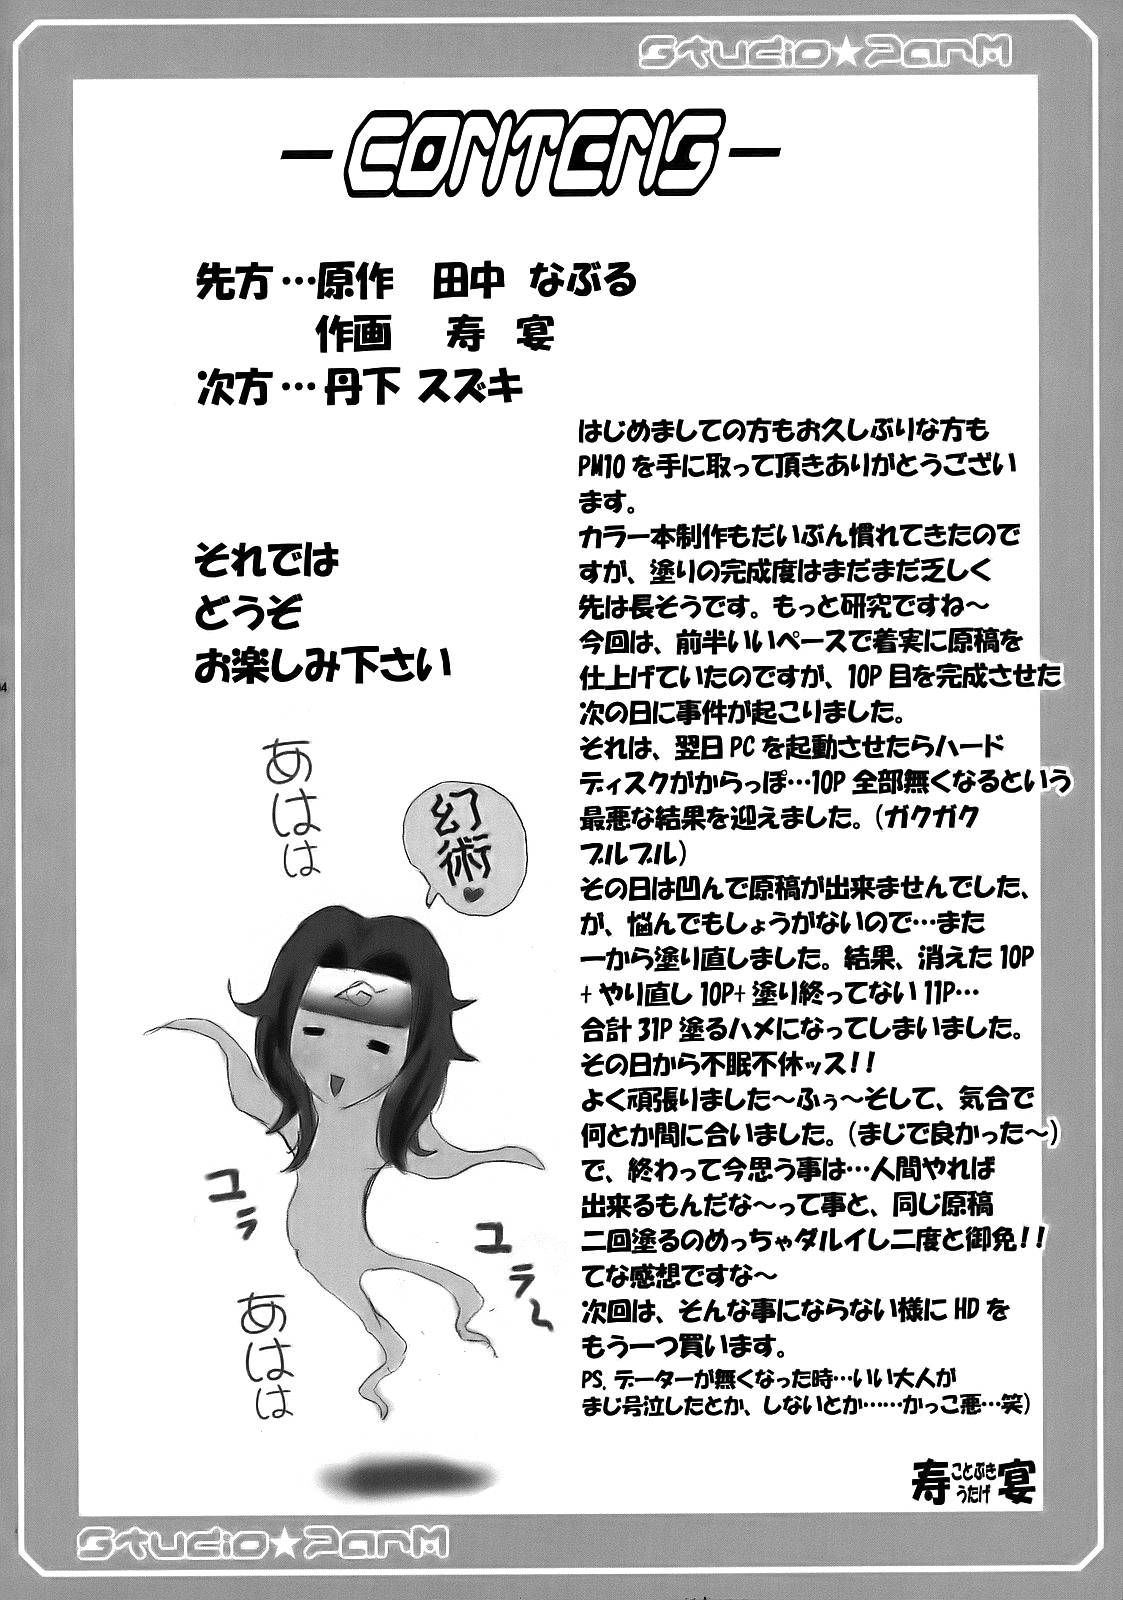 Studio★ParM
-CONTENS-
先方…原作　田中　なぶる
作画　寿　宴
次方…丹下　スズキ
はじめましての方もお久しぶりな方も
PM10を手に取って頂きありがとうござい
ます。
カラー本制作もだいぶん慣れてきたので
すが、塗りの完成度はまだまだ乏しく
先は長そうです。もっと研究ですね～
今回は、前半いいペースで着実に原稿を
仕上げていたのですが、10P目を完成させた
次の日に事件が起こりました。
それは、翌日PCを起動させたらハード
ディスクがからっぽ…10P全部無くなるという
最悪な結果を迎えました。(ガクガク
ブルブル)
その日は凹んで原稿が出来ませんでした、
が、悩んでもしょうがないので…また
一から塗り直しました。結果、消えた10P
+やり直し10P+塗り終ってない11P…
合計31P塗るハメになってしまいました。
その日から不眠不休ッス!!
よく頑張りました～ふぅ～そして、気合で
何とか間に合いました。(まじで良かった～)
で、終わって今思う事は…人間やれば
出来るもんだな～って事と、同じ原稿
二回塗るのめっちゃダルイし二度と御免!!
てな感想ですな～
次回は、そんな事にならない様にHDを
もう一つ買います。
PS.データーが無くなった時…いい大人が
まじ号泣したとか、しないとか……かっこ悪…笑)
寿 ことぶき うたげ 宴
それでは
どうぞ
お楽しみ下さい
あはは
幻術♥
ユラ
ユラ～
あはは
Studio★ParM